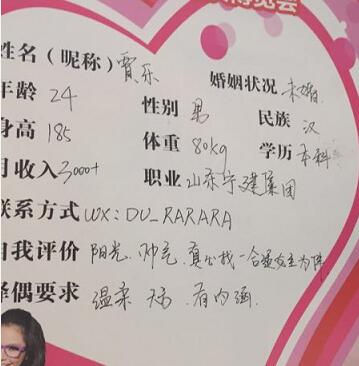 览会
姓名（昵称）贾乐
婚姻状况 未婚
年龄 24
性别 男
民族 汉
身高 185
体重 80kg
学历 本科
月收入 3000+
职业 山东宁建集团
联系方式 WX: DU_RARARA
自我评价 阳光、帅气、真心找一合适女主为伴
择偶要求 温柔 有内涵